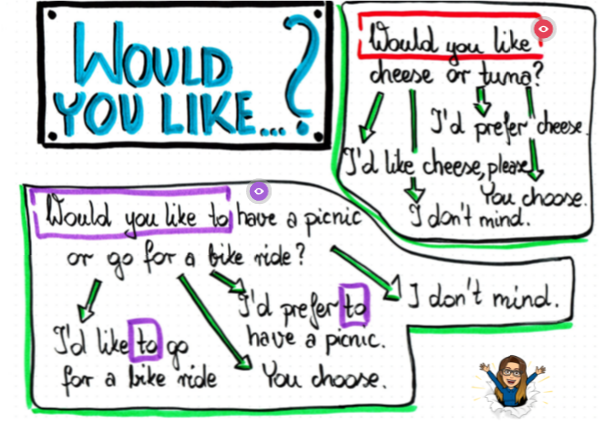 WOULD
YOU LIKE...?
Would you like
cheese or tuna?
I'd prefer cheese.
I'd like cheese, please
You choose.
I don't mind.
Would you like to have a picnic
or go for a bike ride?
I'd prefer to
have a picnic.
I don't mind.
I'd like to go
for a bike ride
You choose.